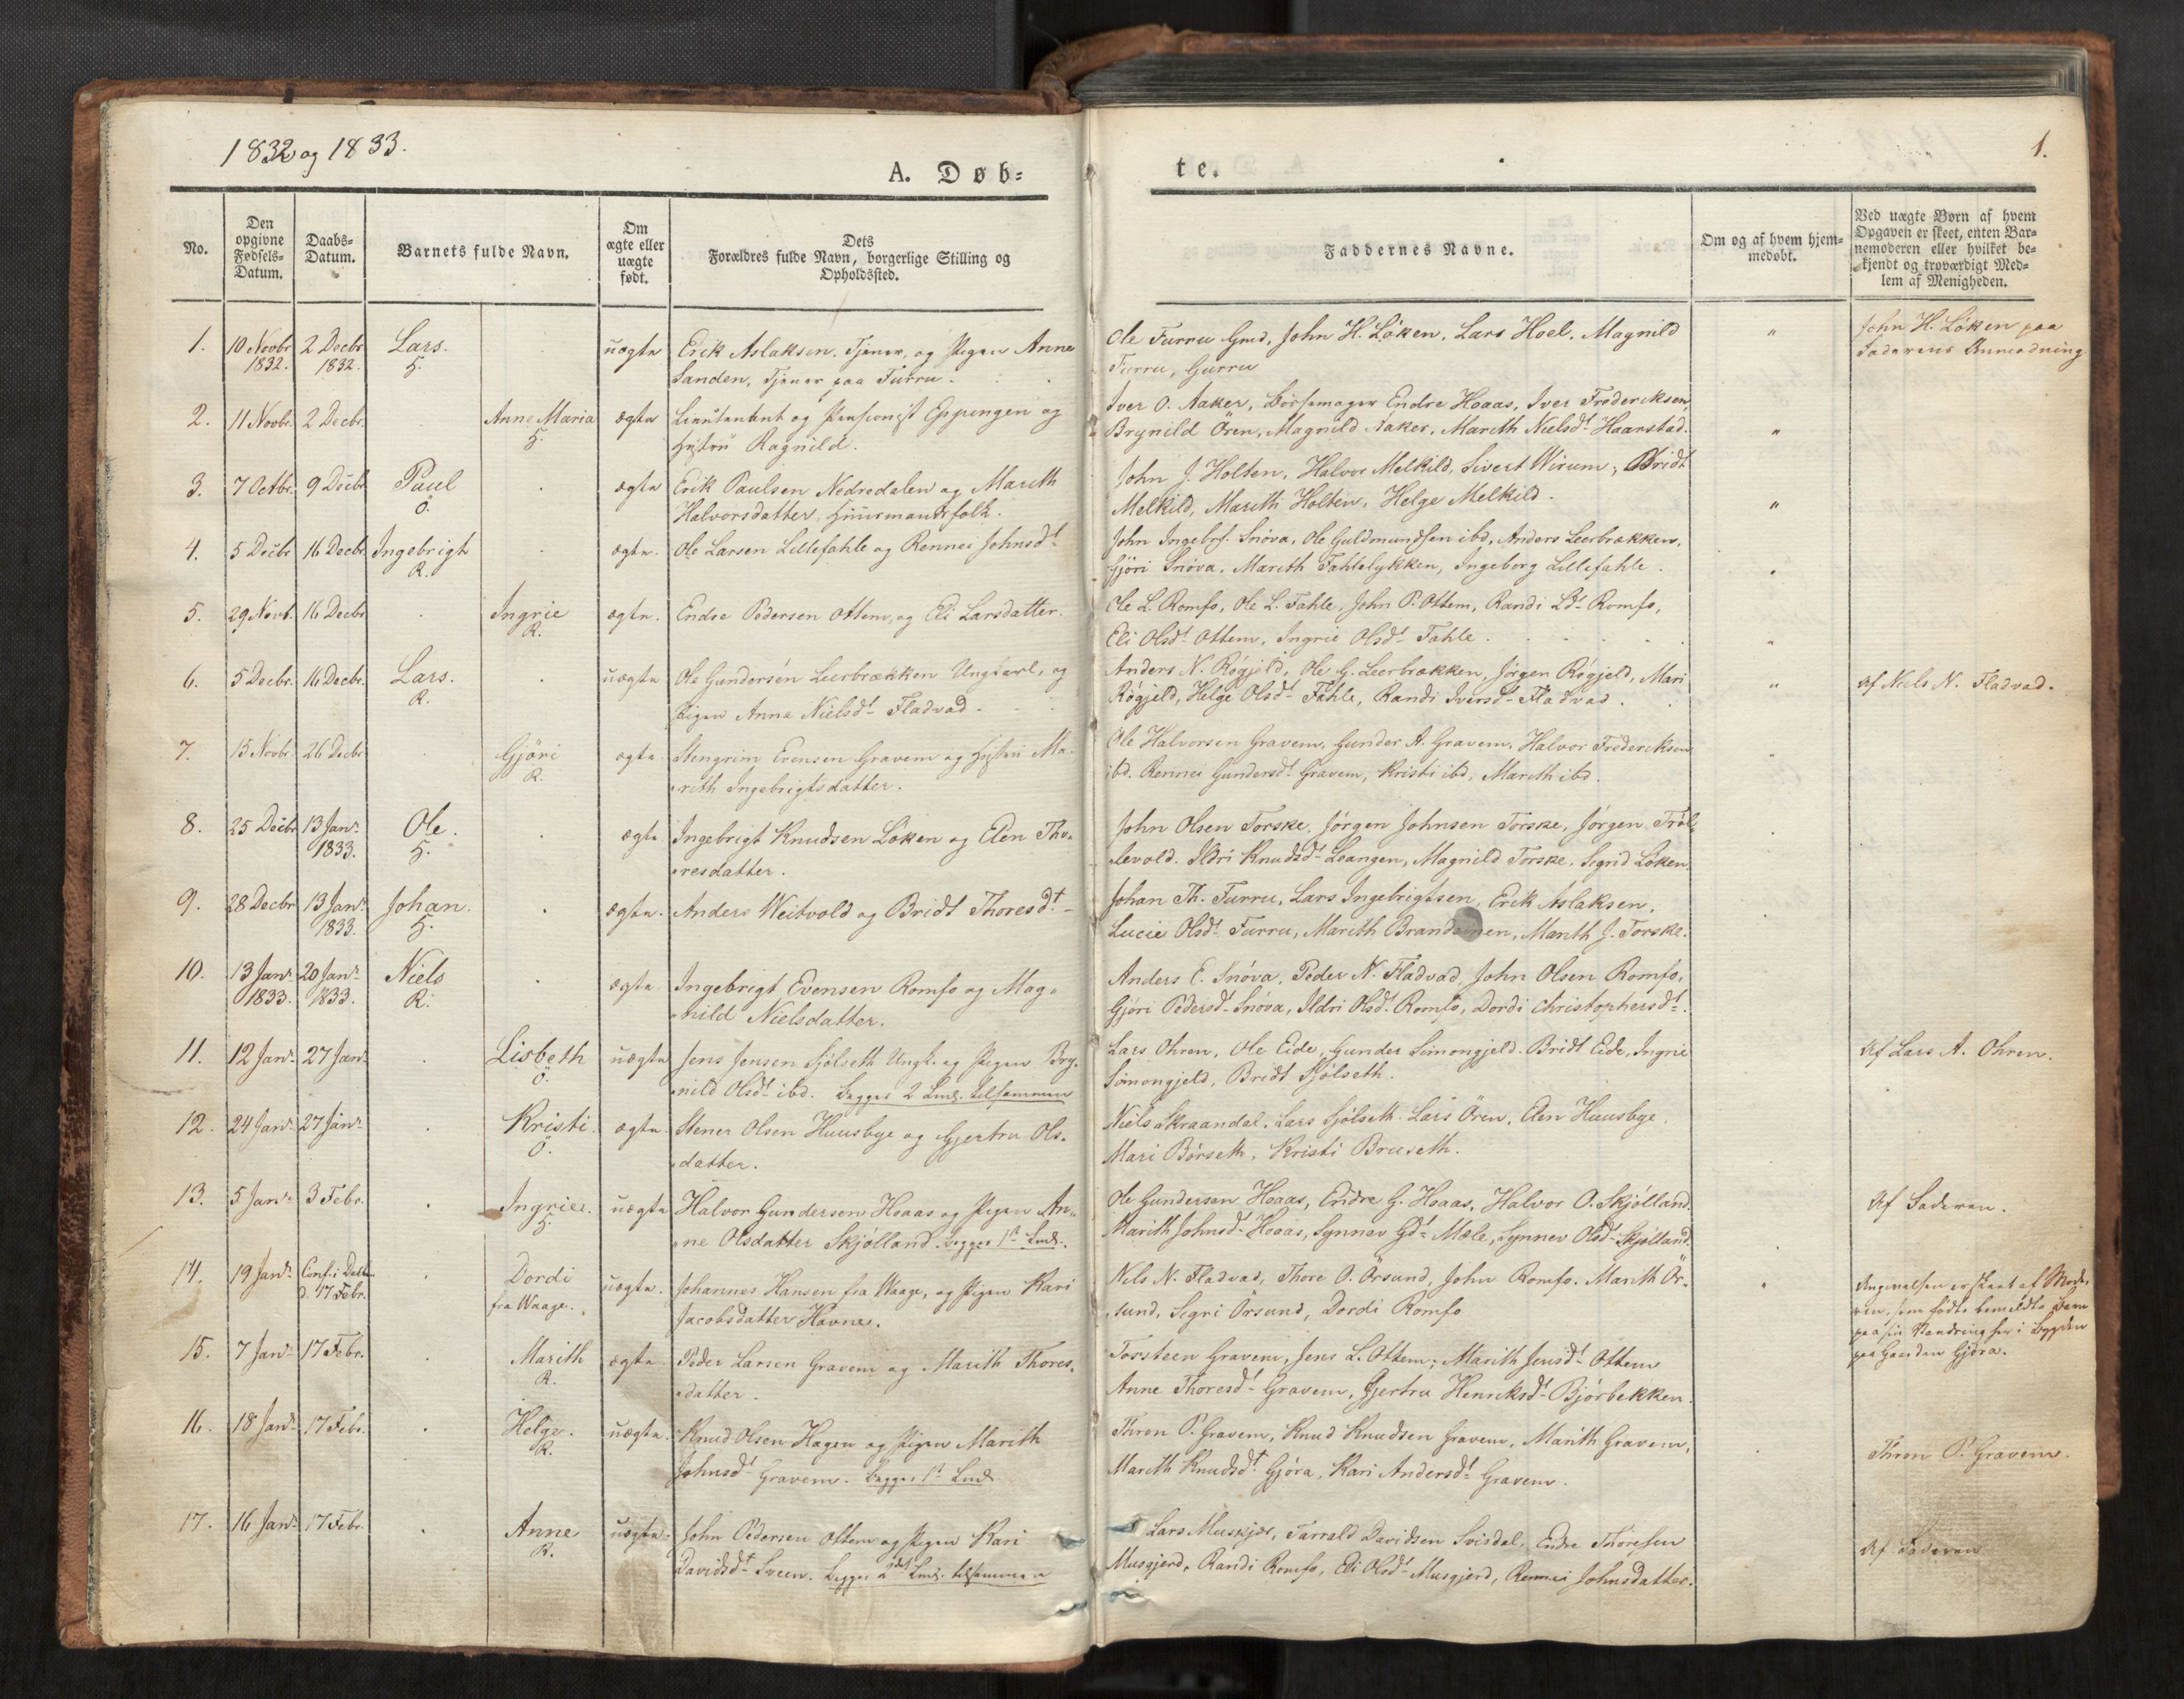 1832 og 1833.
1.
A. Døb=
te.
No.
Den opgivne Fødsels-Datum.
Daabs=Datum.
Barnets fulde Navn.
Om ægte eller uægte født.
Dets Forældres fulde Navn, borgerlige Stilling og Opholdssted.
Faddernes Navne.
Om og af hvem hjem=medøbt.
Ved uægte Børn af hvem Opgaven er skeet, enten Bar=nemoderen eller hvilket be=kjendt og troværdigt Med=lem af Menigheden.
1. 10 Novbr 1832. 2 Decbr 1832. Lars. H. uægte Erik Aslaksen. Tjener, og Pigen Anne
Sanden, Tjener paa Furru.
Ole Furru Gmd, John H. Löken, Lars Hoel, Magnild
Furru, Gurru
John H. Löken paa
Faderens Anmodning
2. 11 Novbr. 2 Decbr. Anne Maria H. ægte Lieutenant og Pensionist Eppingen og
Hustru Ragnild.
Iver O. Aaker, Börsemager Endre Hoaas, Iver Frederiksen,
Brynild Ören, Magnild Aaker, Marith Nielsdt Haarstad.
3. 7 Octbr. 9 Decbr Paul Ö. ægte Erik Paulsen Nedredalen og Marith
Halvorsdatter, Huusmandsfolk.
John J. Holten, Halvor Melkild, Sivert Wirum, Bridt
Melkild, Marith Holten, Helge Melkild.
4. 5 Decbr 16 Decbr Ingebrigt R. ægte. Ole Larsen Lillefahle og Rennei Johnsdt
John Ingebr. Snöva, Ole Guldmundsen ibd, Anders Leerbrækken,
Gjöri Snöva, Marith Fahlelykken, Ingeborg Lillefahle.
5. 29 Novb. 16 Decbr Ingrie R. ægte. Endre Pedersen Ottem, og Eli Larsdatter.
Ole L. Romfo, Ole L. Fahle, John P. Ottem, Randi Ldt Romfo,
Eli Olsdt Ottem, Ingrie Olsdt Fahle.
6. 5 Decbr. 16 Decbr. Lars. R. uægte Ole Gundersen Leerbrækken Ungkarl, og
Pigen Anne Nielsdt Fladvad
Anders N. Rögjeld, Ole G. Leerbrækken, Jörgen Rögjeld, Mari
Rögjeld, Helge Olsdt Fahle, Randi Iversdt Fladvad.
Af Niels N. Fladvad.
7. 15 Novbr. 26 Decbr Gjöri R. ægte. Stengrim Evensen Gravem og Hustru Ma-
rith Ingebrigtsdatter.
Ole Halvorsen Gravem, Gunder A. Gravem, Halvor Frederiksen
ibd. Rennei Gundersdt Gravem, Kristi ibd, Marith ibd.
8. 25 Decbr 13 Janr 1833. Ole. H. ægte. Ingebrigt Knudsen Löken og Elen Tho-
resdatter.
John Olsen Torske, Jörgen Johnsen Torske, Jörgen Tröl-
levold. Ildri Knudsdt Leangen, Magnild Torske. Sigrid Löken.
9. 28 Decbr 13 Janr 1833. Johan. H. ægte. Anders Weitvold og Bridt Thoresdt
Johan Th. Furru, Lars Ingebrigtsen, Erik Aslaksen,
Lucie Olsdt Furru, Marith Marith J. Torske.
10. 13 Janr 1833. 20 Janr 1833. Niels R. ægte. Ingebrigt Evensen Romfo og Mag-
nild Nielsdatter.
Anders E. Snöva, Peder N. Fladvad, John Olsen Romfo,
Gjöri Pedersdt Snöva, Ildri Olsdt Romfo, Dordi Christophersdt.
11. 12 Janr. 27 Janr. Lisbeth Ö. uægte Jens Jensen Sjölseth Ungk. og Pigen Bry-
nild Olsdt ibd. Begges 2 Leierm. tilsammen
Lars Ohren, Ole Eide, Gunder Simongjeld. Bridt Eide, Ingrie
Simongjeld, Bridt Sjölseth.
Af Lars A. Ohren.
12. 24 Janr. 27 Janr. Kristi. Ö. ægte. Stener Olsen Huusbye og Gjertru Ols-
datter.
Niels Skraandal, Lars Sjölseth. Lars Ören, Elen Huusbye.
Mari Börseth, Kristi Bruseth.
13. 5 Janr. 3 Febr. Ingrie. H. uægte Halvor Gundersen Hoaas og Pigen An-
ne Olsdatter Skjölland. Begges 1ste
Ole Gundersen Hoaas, Endre G. Hoaas, Halvor O. Skjölland.
Marith Johnsdt Hoaas, Synnev Gdt Mæle, Synnev Olsdt Skjölland.
Af Faderen.
14. 19 Janr. Conf. i d. 17 Febr. Dordi fra Waage. uægte. Johannes Hansen fra Waage, og Pigen Kari
Jacobsdatter Havne.
Nils N. Fladvad, Thore O. Örsund, John Romfo. Marith Ör-
sund, Segri Örsund, Dordi Romfo
Angivelsen er skeet af Mode-
ren, som fødte bemeldte Barn
paa sin Vandring her i Bygden
paa Gaarden Gjöra.
15. 7 Janr 17 Febr. Marith R. ægte. Peder Larsen Gravem og Marith Thores-
datter.
Torsteen Gravem, Jens L. Ottem, Marith Jensdt Ottem
Anne Thoresdt Gravem, Gjertru Henriksdt Björbekken.
16. 18 Janr 17 Febr. Helge. R. uægte. Knud Olsen Hagen og Pigen Marith
Johnsdt Gravem. Begges 1ste
Thron P. Gravem, Knud Knudsen Gravem, Marith Gravem,
Marith Knudsdt Gjöra, Kari Andersdt Gravem.
Thron P. Gravem.
17. 16 Janr 17 Febr. Anne R. uægte. John Pedersen Ottem og Pigen Kari
Davidsdt Sveen. Begges 2det tilsammen
Lars Musgjer, Tarrald Davidsen Svisdal, Endre Thoresen
Musgjerd, Randi Romfo, Eli Olsdt Musgjerd, Rennei Johnsdatter.
Af Faderen